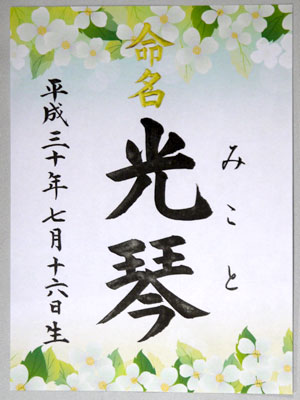 命名
みこと
光琴
平成三十年七月十六日生